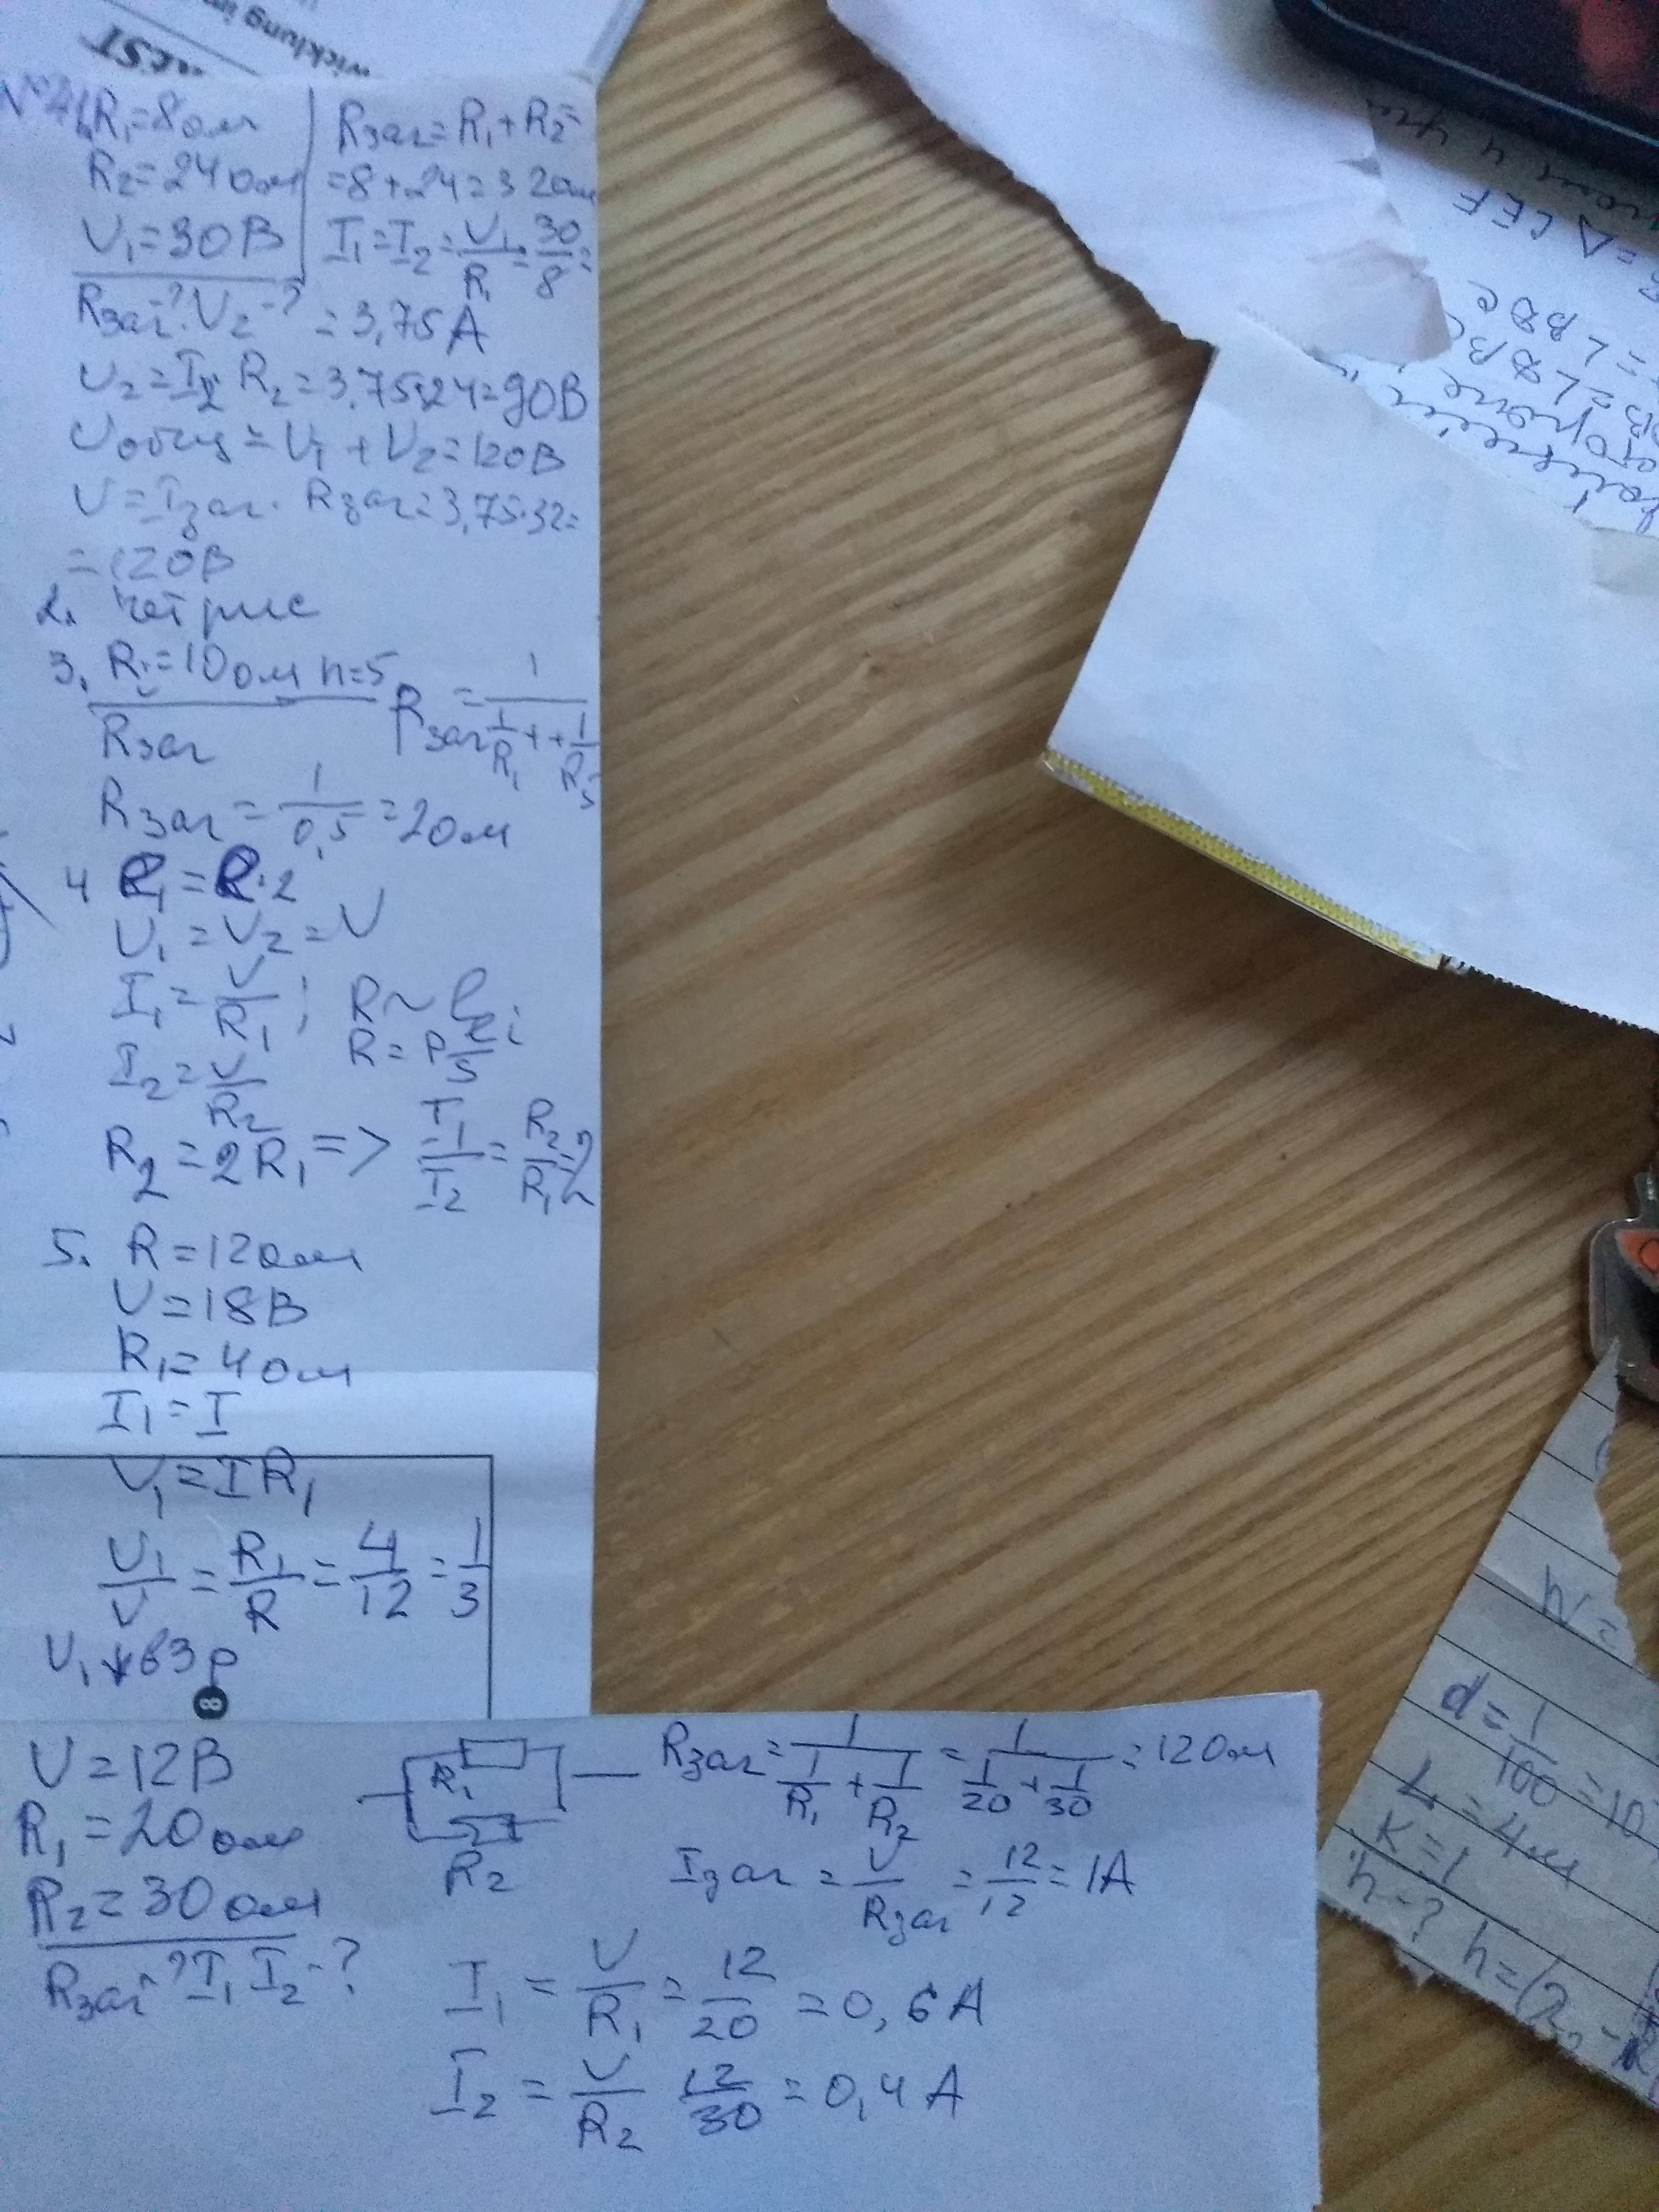 wicklung im
TEST
№41. R₁=8ом
R₂=24ом
U₁=30В
Rзаг-? U₂-?
Rзаг=R₁+R₂=
=8+24=32ом
I₁=I₂=U₁/R₁=30/8=
=3,75А
U₂=I₂·R₂=3,75·24=90В
Uобщ=U₁+U₂=120В
U=Iзаг·Rзаг=3,75·32=
=120В
2. нет рис
3. R₁=10ом n=5
Rзаг
Rзаг=1/(1/R₁+ +1/R₅)
Rзаг=1/0,5=2ом
4 R₁=R·2
U₁=U₂=U
I₁=U/R₁; R~l
I₂=U/R₂ R=ρl/S;
R₂=2R₁=> I₁/I₂=R₂/R₁=2
5. R=12ом
U=18В
R₁=4ом
I₁=I
U₁=IR₁
U₁/U=R₁/R=4/12=1/3
U₁↓в3р
8
U=12В
R₁=20ом
R₂=30ом
Rзаг-? I₁ I₂-?
R₁
R₂
Rзаг=1/(1/R₁+1/R₂)=1/(1/20+1/30)=12ом
Iзаг=U/Rзаг=12/12=1А
I₁=U/R₁=12/20=0,6А
I₂=U/R₂ 12/30=0,4А
=Δ CEF
=∠BDC
d=1/100=10
L=4м
K=1
h-? h=